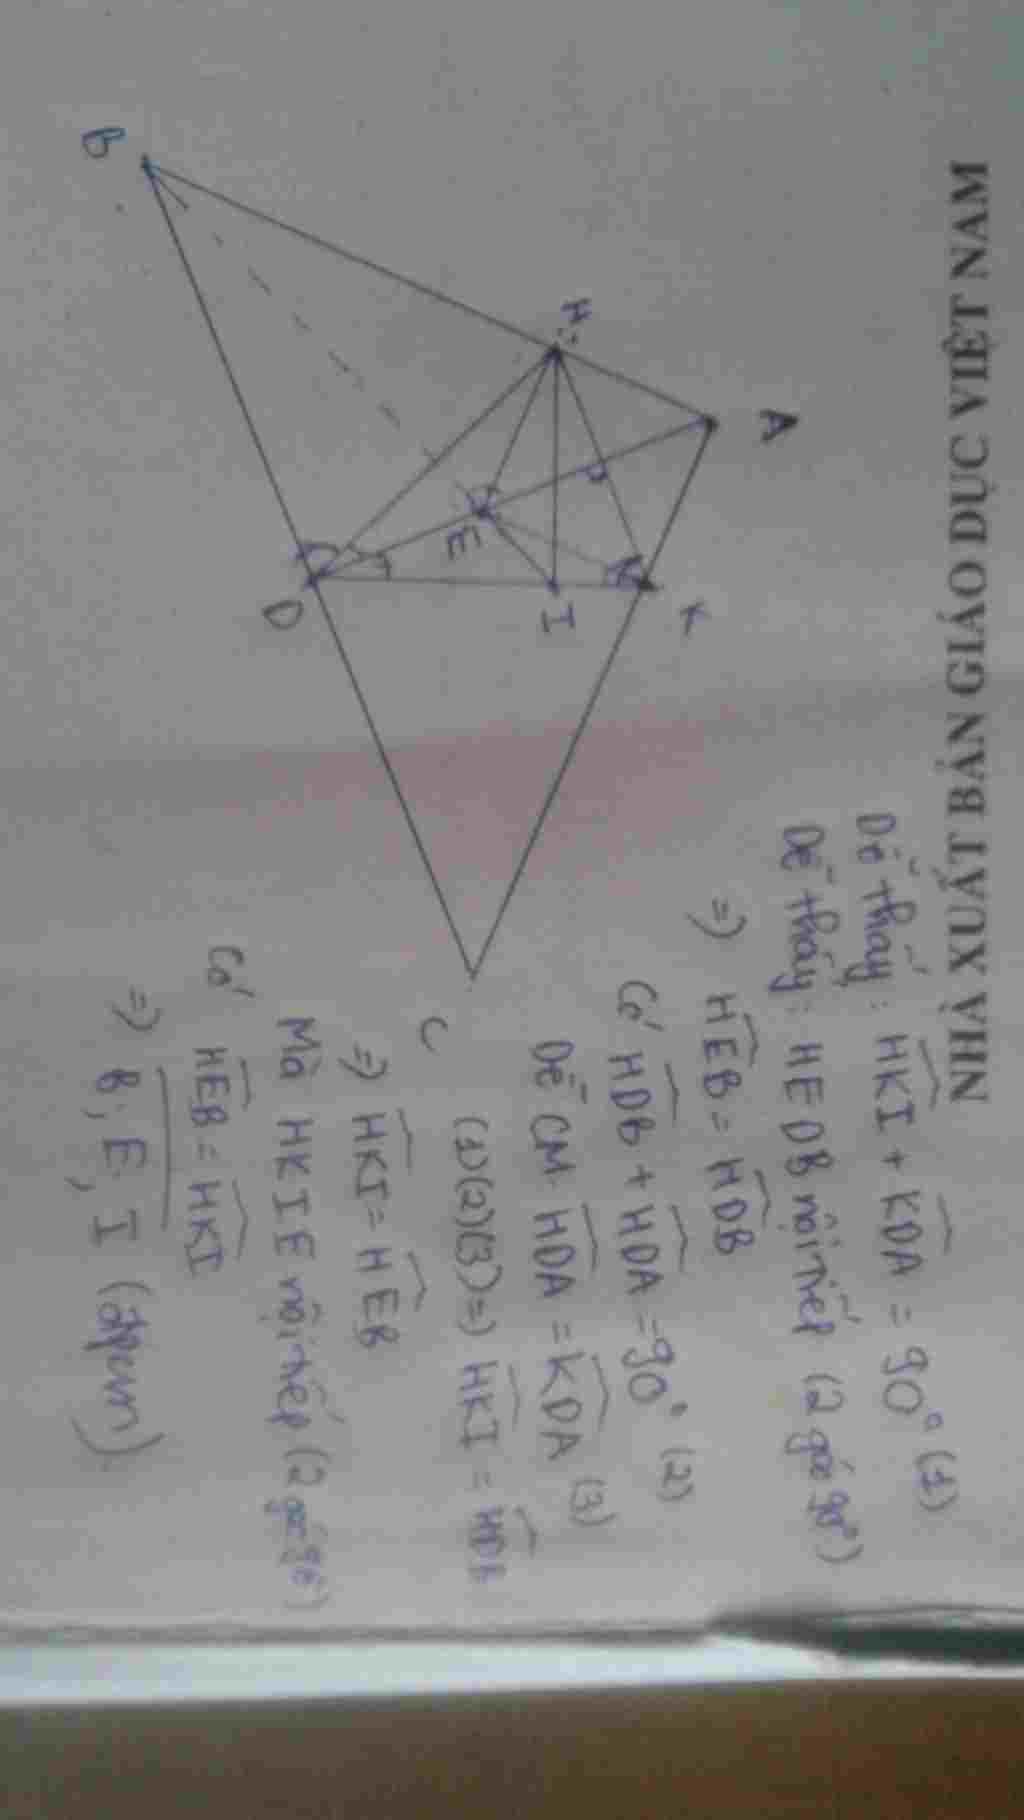 NHÀ XUẤT BẢN GIÁO DỤC VIỆT NAM
A
B
C
D
E
H
I
K
P
Dễ thấy: HKI + KDA = 90° (1)
Dễ thấy: HEDB nội tiếp (2 góc 90°)
=> HEB = HDB
Có HDB + HDA = 90° (2)
Dễ CM HDA = KDA (3)
(1)(2)(3) => HKI = HDB
=> HKI = HEB
Mà HKIE nội tiếp (2 góc 90°)
Có HEB = HKI
=> B, E, I (đpcm)